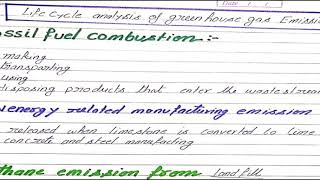 Life cycle analysis of green house gas Emissio
ssil fuel combustion :-
making
transporting
using
disposing products that enter the wastestream
energy related manufacturing emission
released when limestone is converted to lime
concrete and steel manufacting
thane emission from landfill